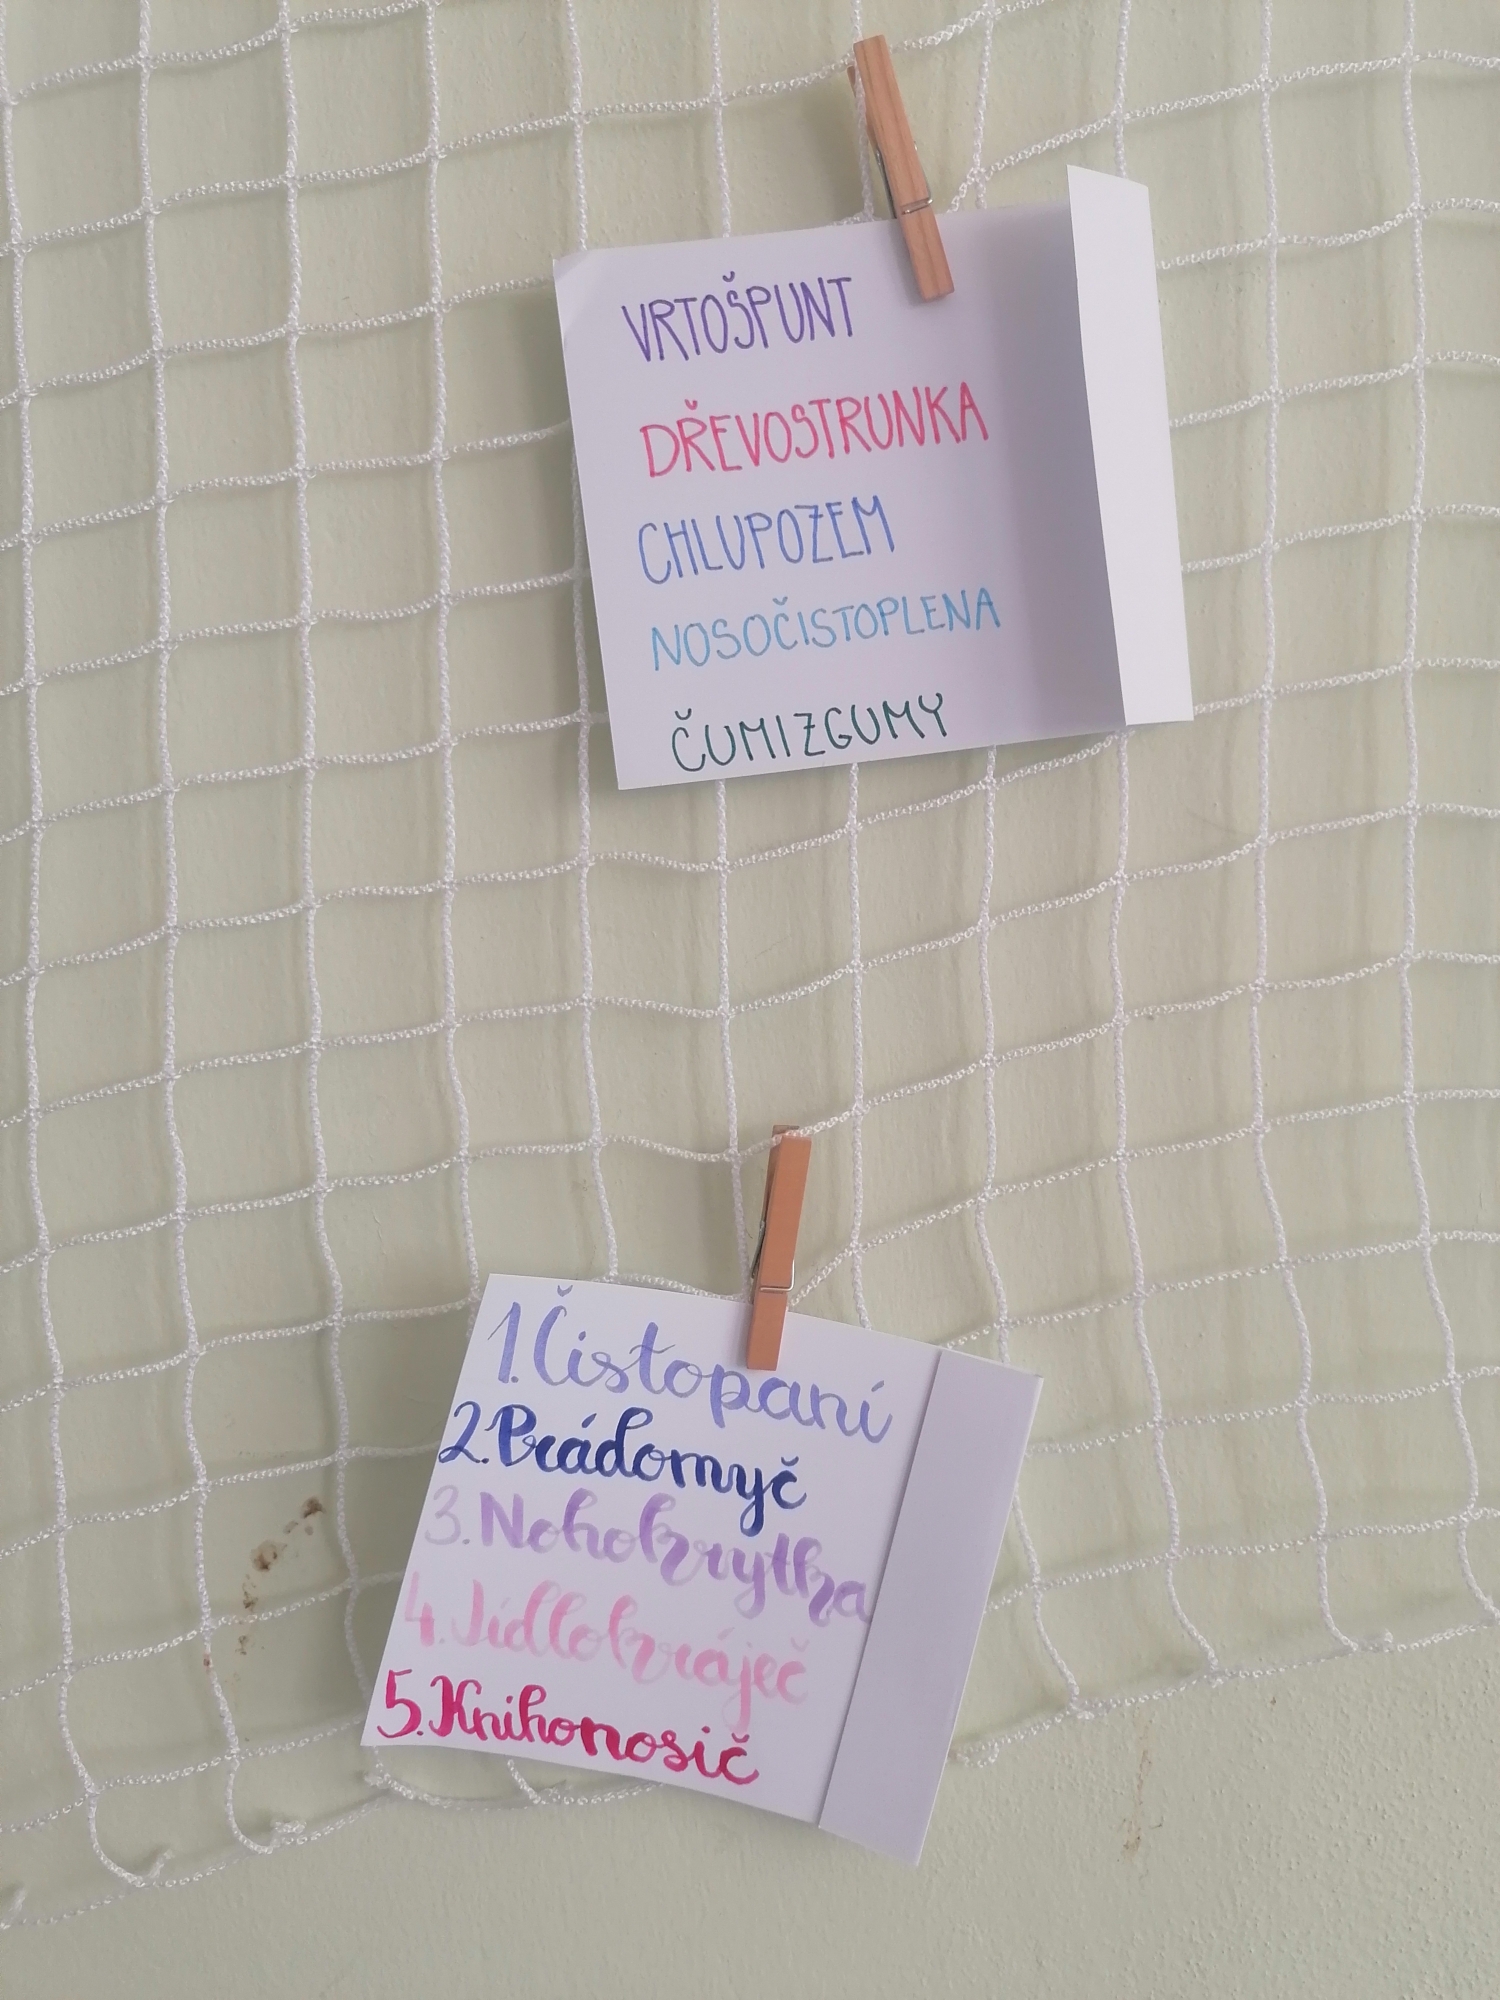 VRTOŠPUNT
DŘEVOSTRUNKA
CHLUPOZEM
NOSOČISTOPLENA
ČUMIZGUMY
1. Čistopaní
2. Prádomyč
3. Nohokrytka
4. Jídlokráječ
5. Knihonosič